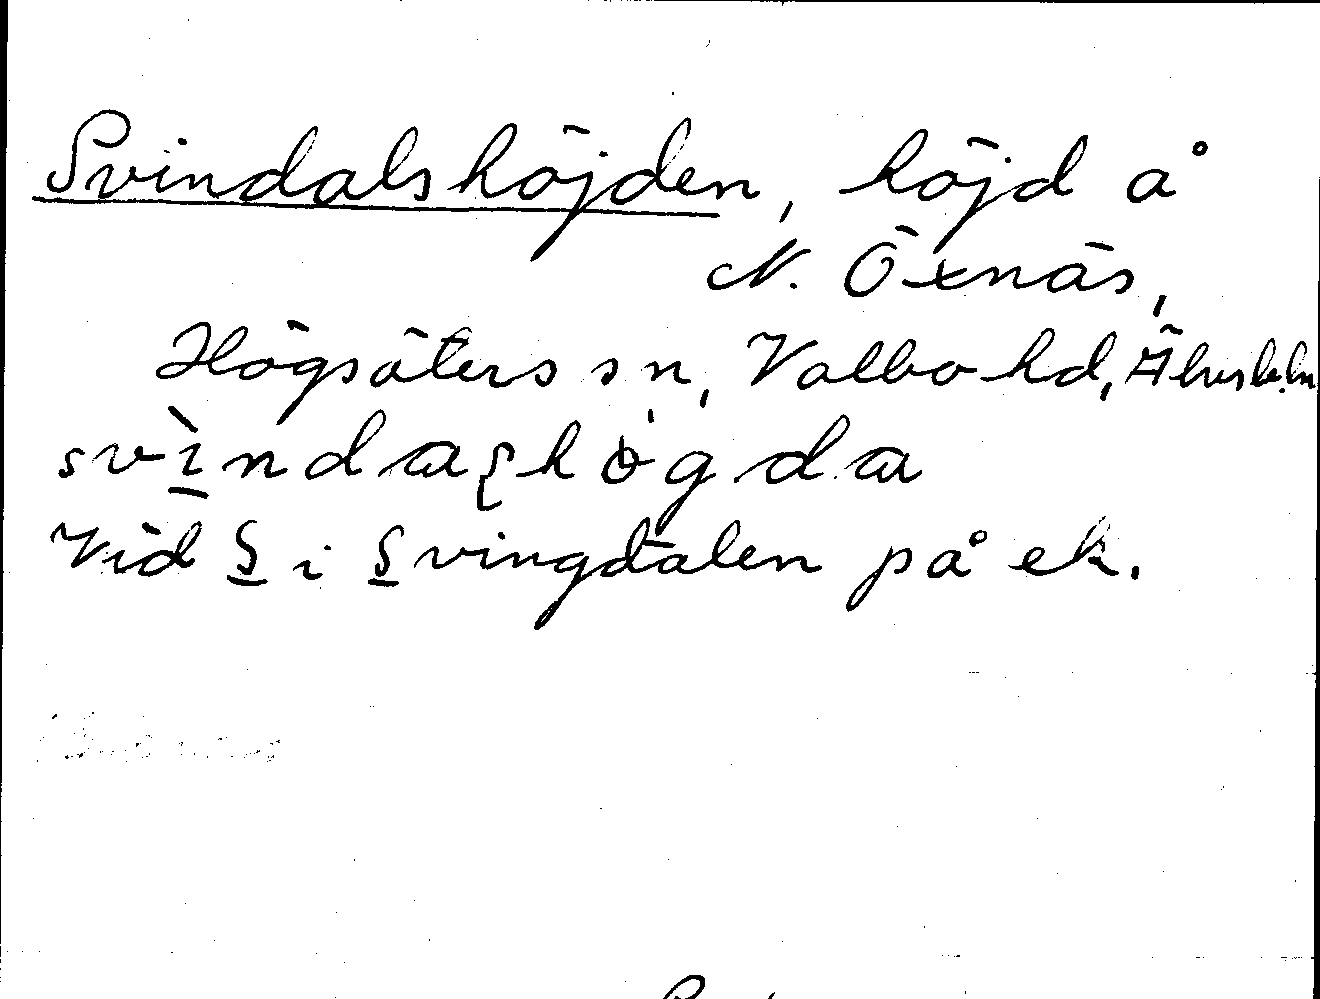 Svindalshöjden, höjd å
N. Öxnäs,
Högsäters sn, Valbo hd, Älvsb. ln
svìndaʃhö̀gda
Vid S i Svingdalen på ek.